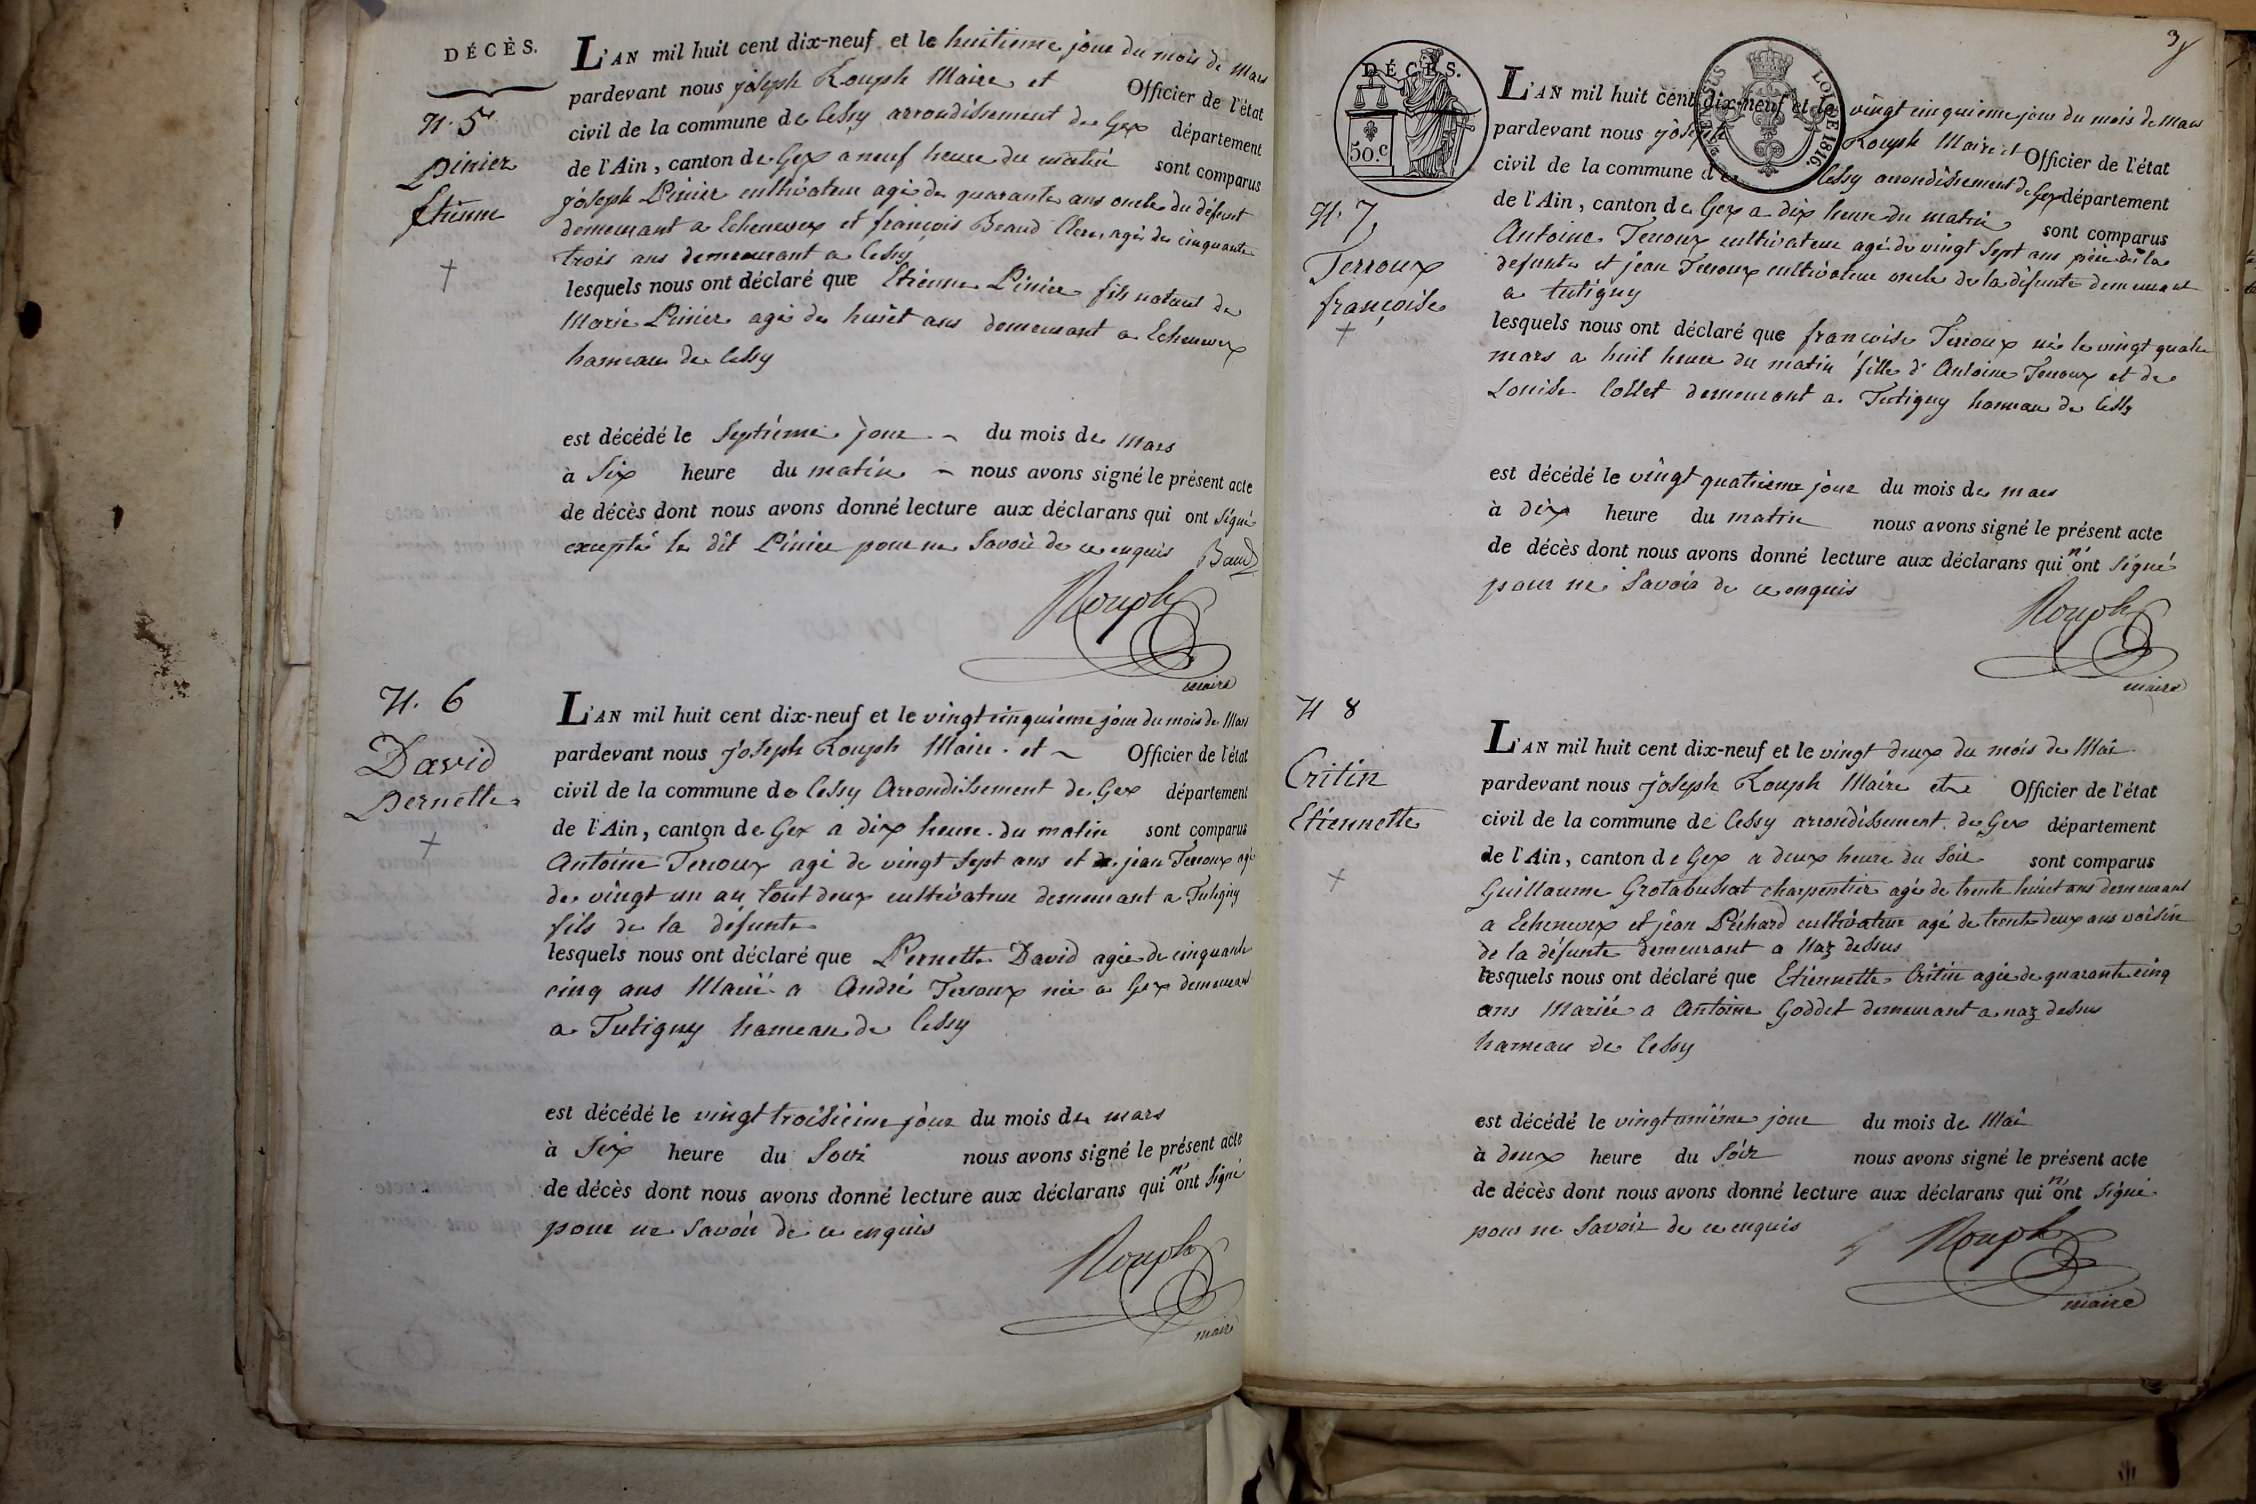 DÉCÈS.
N. 5
Pinier
Etienne
L'AN mil huit cent dix-neuf et le huitieme jour du mois de Mars
pardevant nous joseph Rouph Maire et Officier de l'état
civil de la commune de Cessy arrondissement de Gex département
de l'Ain, canton de Gex a neuf heure du matin sont comparus
joseph Pinier cultivateur agé de quarante ans oncle du défunt
demeurant a Echenevex et françois Beaud Clerc agé de cinquante
trois ans demeurant a Cessy
lesquels nous ont déclaré que Etienne Pinier fils naturel de
Marie Pinier agé de huit ans demeurant a Echenevex
hameau de Cessy
est décédé le Septiéme jour du mois de Mars
à Six heure du matin nous avons signé le présent acte
de décès dont nous avons donné lecture aux déclarans qui ont signé
excepté le dit Pinier pour ne Savoir de ce enquis Baud
Rouph
maire
N. 6
David
Pernette
L'AN mil huit cent dix-neuf et le vingt cinquiéme jour du mois de Mars
pardevant nous joseph Rouph Maire et Officier de l'état
civil de la commune de Cessy Arrondissement de Gex département
de l'Ain, canton de Gex a dix heure du matin sont comparus
Antoine Terroux agé de vingt Sept ans et jean Terroux agé
de vingt un an tout deux cultivateur demeurant a Tutigny
fils de la défunte
lesquels nous ont déclaré que Pernette David agée de cinquante
cinq ans Marié a André Terroux née a Gex demeurant
a Tutigny hameau de Cessy
est décédé le vingt troisiéme jour du mois de mars
à Six heure du Soir nous avons signé le présent acte
de décès dont nous avons donné lecture aux déclarans qui n'ont signé
pour ne Savoir de ce enquis
Rouph
maire
3
DÉCÈS.
50.c
LOI DE 1816.
N. 7
Terroux
françoise
L'AN mil huit cent dix-neuf et le vingt cinquieme jour du mois de Mars
pardevant nous joseph Rouph Maire et Officier de l'état
civil de la commune de Cessy arrondissement de Gex département
de l'Ain, canton de Gex a dix heure du matin sont comparus
Antoine Terroux cultivateur agé de vingt Sept ans père de la
defunte et jean Terroux cultivateur oncle de la défunte demeurant
a tutigny
lesquels nous ont déclaré que françoise Terroux né le vingt quatre
mars a huit heure du matin fille d'Antoine Terroux et de
Louise Collet demeurant a Tutigny hameau de Cessy
est décédé le vingt quatrieme jour du mois de mars
à dix heure du matin nous avons signé le présent acte
de décès dont nous avons donné lecture aux déclarans qui n'ont signé
pour ne Savoir de ce enquis
Rouph
maire
N 8
Critin
Etiennette
L'AN mil huit cent dix-neuf et le vingt deux du mois de Mai
pardevant nous joseph Rouph Maire et Officier de l'état
civil de la commune de Cessy arrondissement de Gex département
de l'Ain, canton de Gex a deux heure du Soir sont comparus
Guillaume Grotabussat charpentier agé de trente huit ans demeurant
a Echenevex et jean Péchard cultivateur agé de trente deux ans voisin
de la défunte demeurant a Naz dessus
lesquels nous ont déclaré que Etiennette Critin agée de quarante cinq
ans Mariée a Antoine Goddet demeurant a naz dessus
hameau de Cessy
est décédé le vingt uniéme jour du mois de Mai
à deux heure du Soir nous avons signé le présent acte
de décès dont nous avons donné lecture aux déclarans qui n'ont signé
pour ne Savoir de ce enquis
Rouph
maire